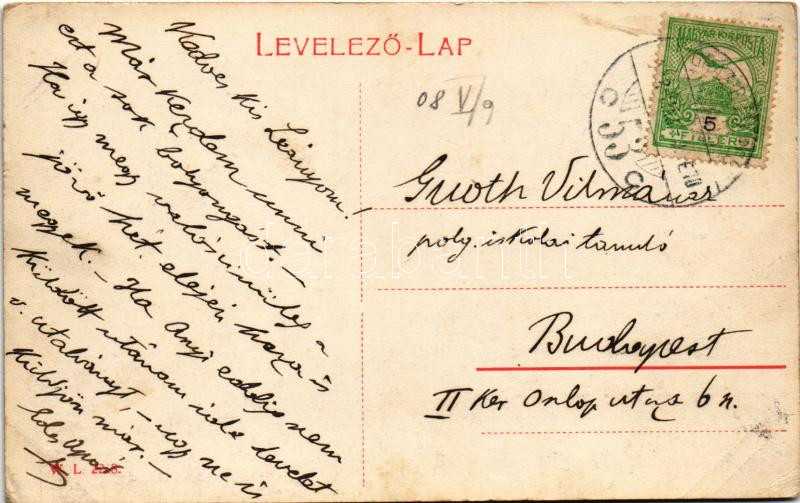 LEVELEZŐ-LAP
Kedves kis Leányom!
Már kezdem unni
ezt a sok bolyongást. —
Ha így megy valószínüleg a
jövő hét elején haza is
megyek. — Ha Anyi eddig nem
küldött utánam ide levelet
v. utalványt — úgy ne is
küldjön már. —
Édesapád
08 V/9
MAGYAR KIR. POSTA
5
FILLÉR
53
Guoth Vilma
polg. iskolai tanuló
Budapest
II Ker Oszlop utca 6 n.
W. L. 22-8.
darabanth